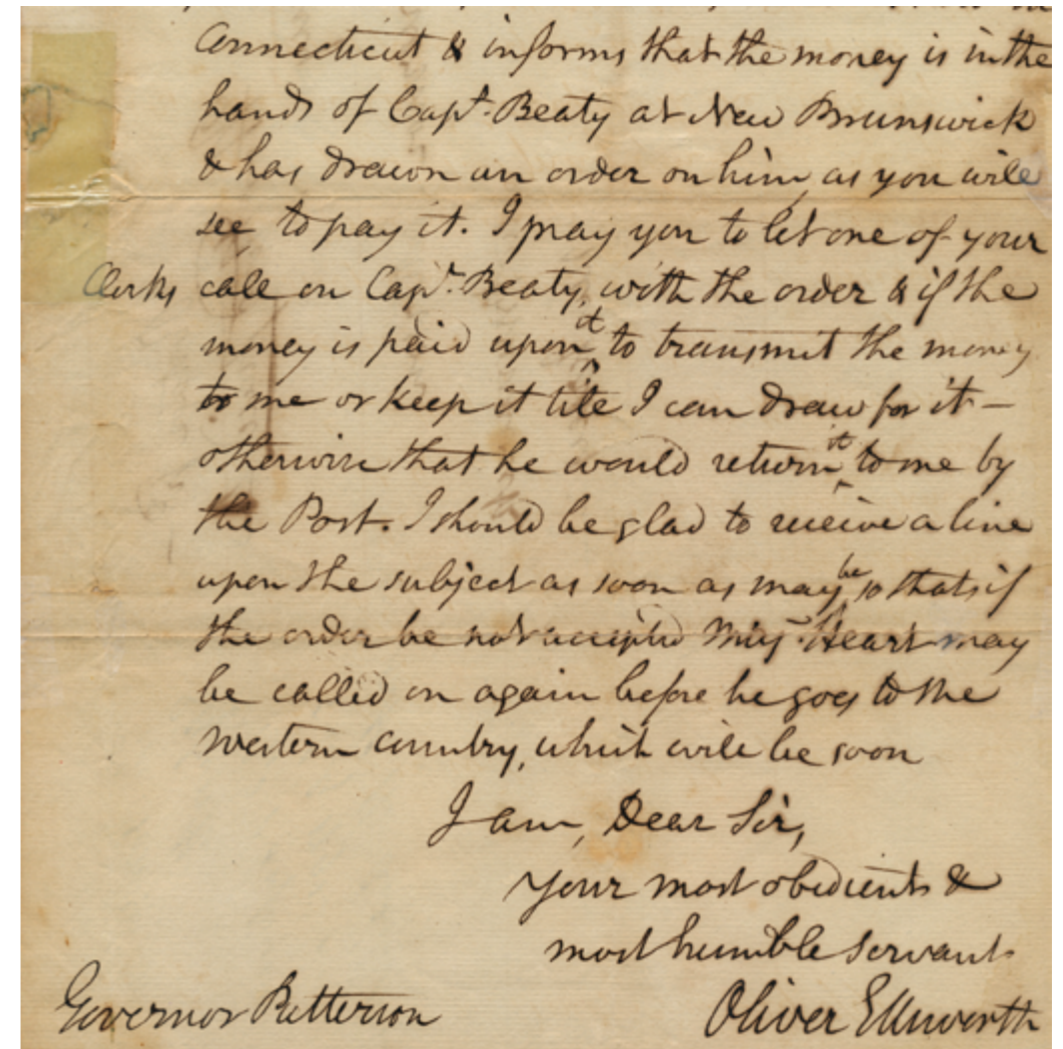 Connecticut & informs that the money is in the
hands of Capt. Beaty at New Brunswick
& has drawn an order on him, as you will
see to pay it. I pray you to let one of your
Clerks call on Capt. Beaty, with the order & if the
money is paid upon it to transmit the money
to me or keep it till I can draw for it —
otherwise that he would return it to me by
the Post. I should be glad to receive a line
upon the subject as soon as may be so that if
the order be not accepted Majr. Heart may
be called on again before he goes to the
western country, which will be soon
I am, Dear Sir,
Your most obedient &
most humble servant
Governor Patterson
Oliver Ellsworth